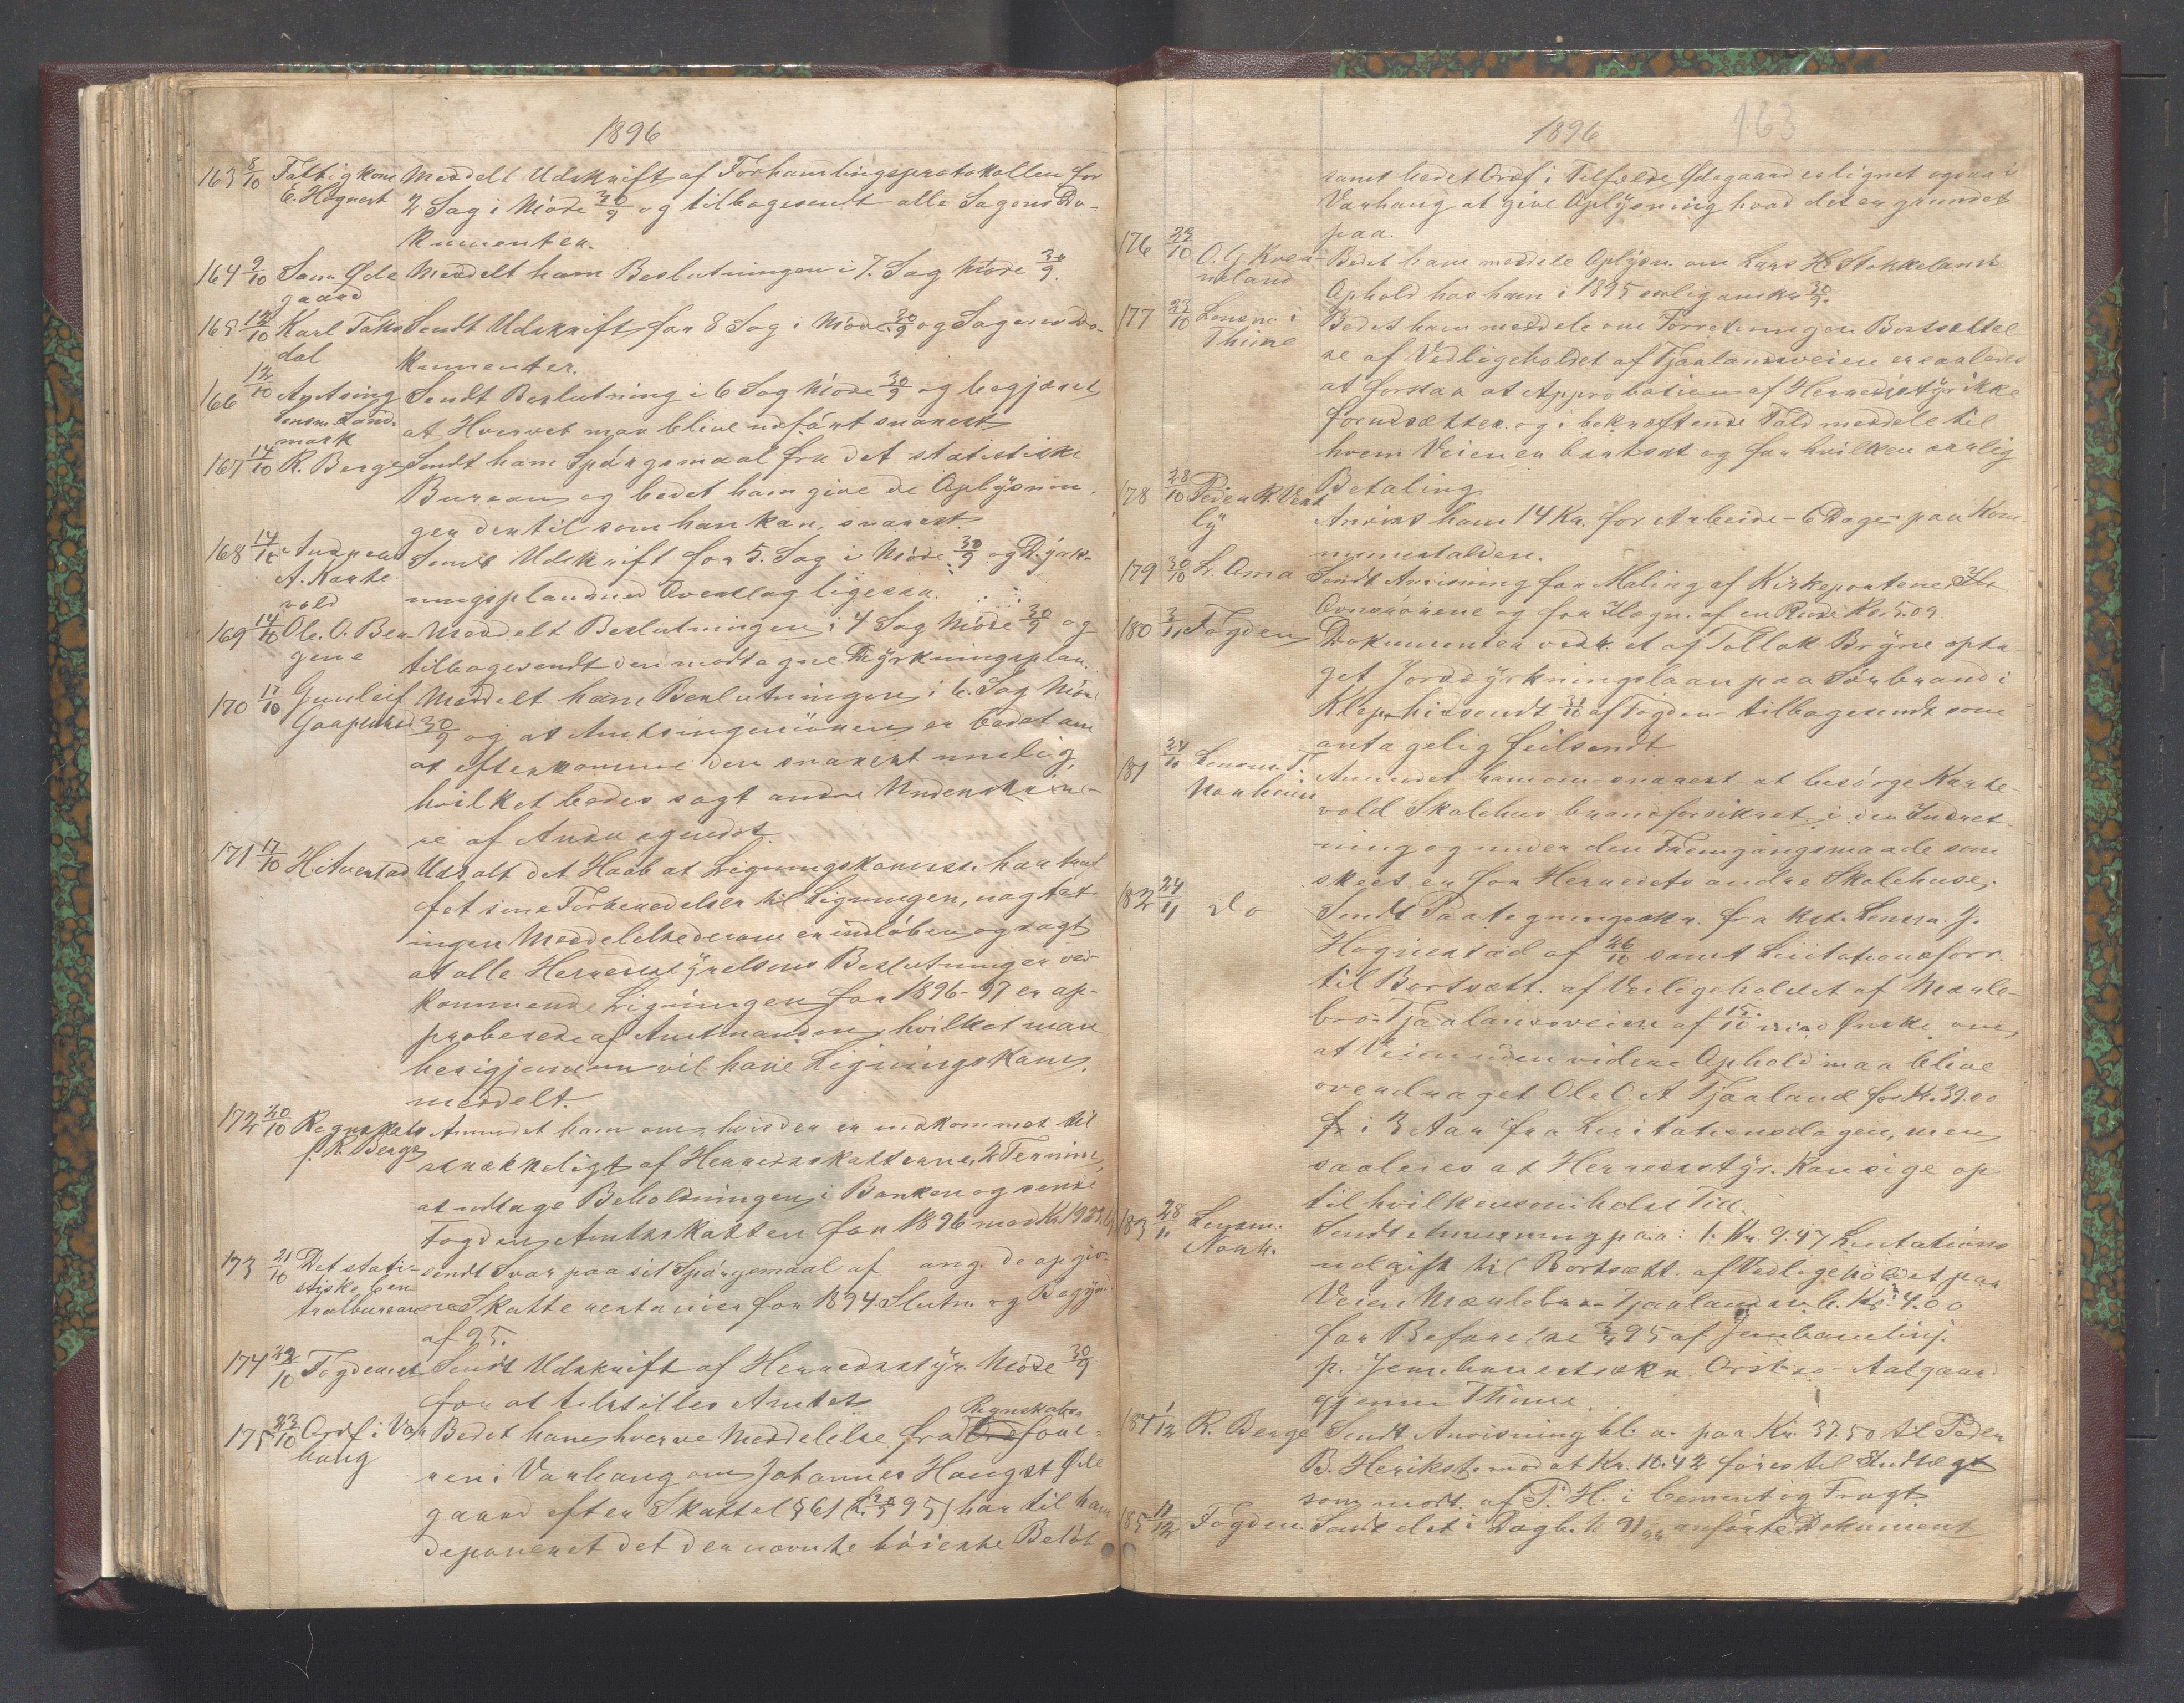 1896
163 8/10 Fattigkom. Meddelt Udskrift af Forhandlingsprotokollen for
E. Hognest 2 Sag i Møde 30/9 og tilbagesendt alle Sagens Do-
kumenter.
164 9/10 Søren Øde Meddelt ham Beslutningen i 7. Sag Møde 30/9.
gaard
165 12/10 Karl Taks Sendt Udskrift for 8 Sag i Møde 30/9 og Sagens Do-
dal kumenter.
166 12/10 Amtsing Sendt Beslutning i 6 Sag Møde 30/9 og begjæret
Land-
mark at Hvervet maa blive udført snarest
167 14/10 R. Berge Sendt ham Spørgsmaal fra det statistiske
Bureau og bedet ham give de Oplysnin-
ger dertil som han kan, snarest.
168 14/10 Andreas Sendt Udskrift for 5. Sag i Møde 30/9 og Dyrk-
A. Karte
vold ningsplan med Overslag ligesaa.
169 14/10 Ole. O. Ber- Meddelt Beslutningen i 4 Sag Møde 30/9 og
gene tilbagesendt den modtagne Dyrkningsplan.
170 17/10 Gunleif Meddelt ham Beslutningen i 6. Sag Møde
30/9 og at Amtsingeniøren er bedet om
at efterkomme den snarest mulig,
hvilket bedes sagt andre
re af
171 17/10 H. Auestad Udtalt det Haab at Ligningskommiss. har truf
fet sine Forberedelser til Ligningen, uagtet
ingen Meddelelse derom er indløben og sagt
at alle Herredsstyrelsens Beslutninger ved-
kommende Ligningen for 1896-97 er ap-
proberede af Amtmanden, hvilket man
herigjennem vil have Ligningskom.
meddelt.
172 20/10 Regnskabs Anmodet ham om, hvis der er indkommet til
f. R. Berge strækkeligt af Herredsskatterne, 2 Termin,
at udtage Beholdningen i Banken og sende
Fogden Amtsskatten for 1896 med Kr.
173 21/10 Det stati- sendt Svar paa sit Spørgsmaal af ang. de opgiv-
stiske Cen
tralbureau ne Skatterestancer for 1894 Slutn. og Begyn.
af 95.
174 22/10 Fogderiet Sendt Udskrift af Herredsstyr. Møde 30/9
for at tilstilles Amtet
175 23/10 Ordf. i Var Bedet ham hverve Meddelelse fra Regnskabs fore-
haug ren i Varhaug om Johannes Haugst Øde
gaard efter Skattel § 61 har til ham
deponeret det der nævnte høieste Beløb

1896 163
samt bedet Ordf i Tilfælde Ødegaard er lignet ogsaa i
Varhaug at give Oplysning hvad det er grundet
paa.
176 23/10 O. G. Kver- Bedet ham meddele Oplysn. om Lars H. Stokkelands
neland Ophold hos ham i 1895
177 23/10 Lensm i Bedet ham meddele om Forretningen Bortsættel
Thime se af Vedligeholdet af Tjaalandsveien er saaledes
at forstaa at Approbation af Herredsstyr ikke
forudsættes. og i bekræftende Fald meddele til
hvem Veien er bortsat og for hvilken aarlig
Betaling
178 28/10 Peder R. Vest
ly Anvist ham 14 Kr. for Arbeide - 6 Dage - paa Kom-
munestalden.
179 30/10 L. Oma Sendt Anvisning for Maling af Kirkeportene
Ovnsrørene og for af en Rude Kr. 5.09.
180 3/11 Fogden Dokumenter vedk. et af Tollak Bryne opta-
get Jorddyrkningslaan paa Sørbrand i
Klep, hidsendt 31/10 af Fogden - tilbagesendt som
antagelig feilsendt
181 24/10 Lensm. T. Anmodet ham om snarest at besørge Karte-
Norheim vold Skolehus brandforsikret i den Indret-
ning og under den Fremgangsmaade som
skeet er for Herredets andre Skolehuse.
182 24/11 do Sendt Paategning fra kst. Lensm. J.
Hognestad af 26/10 samt Licitationsforr.
til Bortsætt. af Vedligeholdet af Mæle-
bro-Tjaalandsveien af 15/10 med Ønske om
at Veien uden videre Ophold maa blive
overdraget Ole O. A Tjaaland for Kr. 39.00
i 3 Aar fra Licitationsdagen, men
saaledes at Herredsstyr. kan sige op
til hvilkensomhelst Tid.
183 28/11 Lensm. Sendt Anvisning paa: 1. Kr. 9.47 Licitations
Norh. udgift til Bortsætt. af Vedligeholdet paa
Veien Tjaaland Kr: 4.00
for Befarelse 95 af Jernbanelinj.
p. Aalgaard
gjennem Thime.
184 1/12 R. Berge Sendt Anvisning bl. a. paa Kr. 37.50 til Peder
B. Herikst. mod at Kr. 10.42 føres til Indtægt
som modt. af P. H. i Cement og Fragt
185 11/12 Fogden. Sendt det i Dagb. N 91/96 anførte Dokument